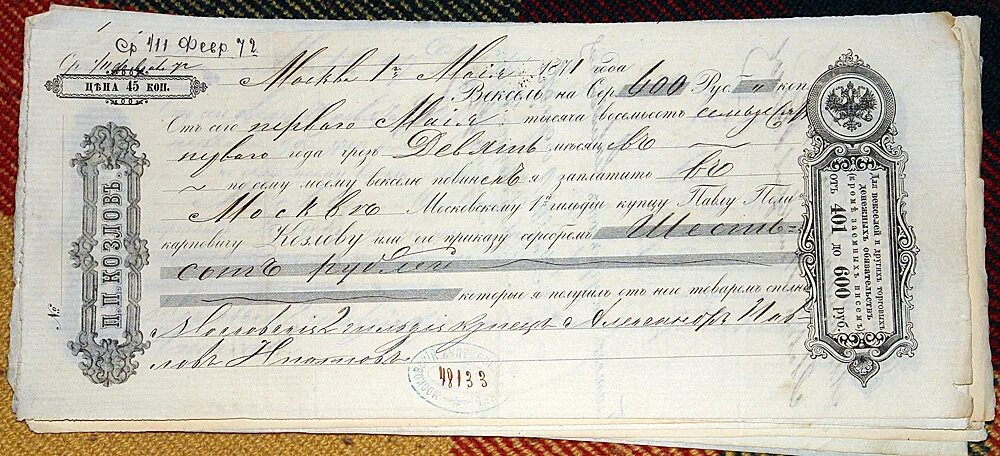 Ср 1/11 Февр. 72
ЦѢНА 45 КОП.
Москва 1го Маія 1871 года
Вексель на Сер. 600 Руб. " коп.
Отъ сего перваго Маія тысяча восемьсотъ семьдесятъ
перваго года чрезъ Девять месяцевъ
по сему моему векселю повиненъ я заплатить въ
Москвѣ Московскому 1й гильдіи купцу Павлу Поли
карповичу Козлову или его приказу серебромъ Шесть=
сотъ рублей
которые я получилъ отъ него товаромъ сполна
Московскій 2 гильдіи купецъ Александръ Пав
ловъ
№
П.П. КОЗЛОВЪ.
48133
Для векселей и другихъ торговыхъ
денежныхъ обязательствъ
(кромѣ заемныхъ писемъ)
ОТЪ 401 ДО 600 РУБ.